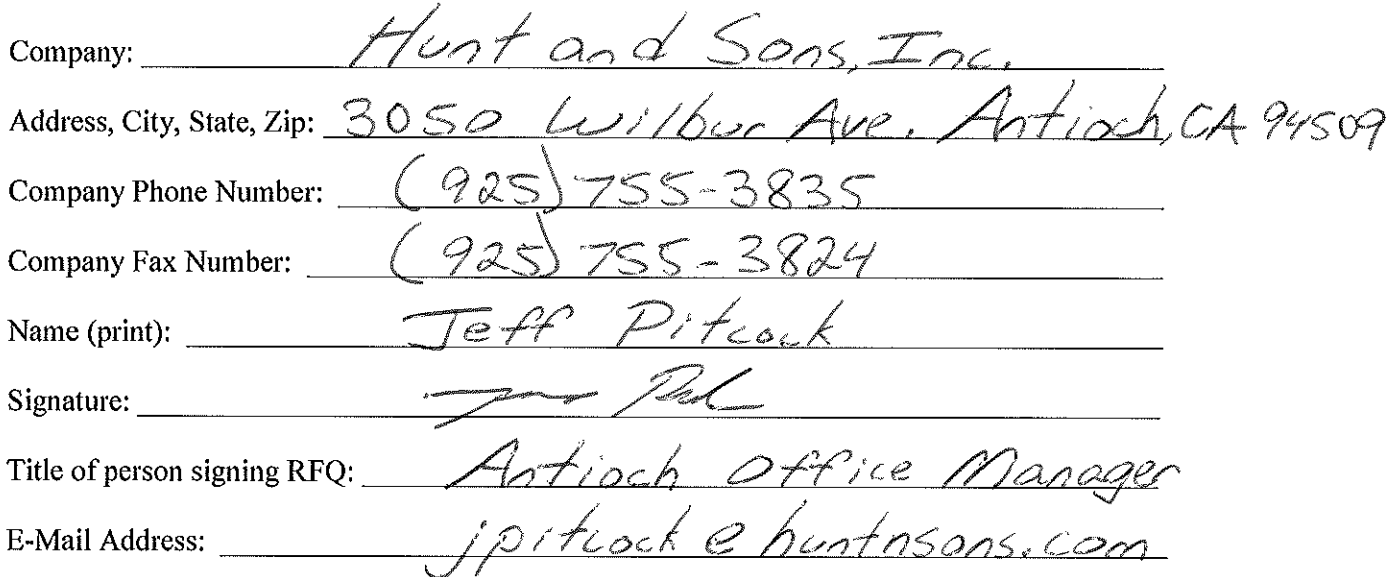 Company: Hunt and Sons, Inc.
Address, City, State, Zip: 3050 Wilbur Ave. Antioch, CA 94509
Company Phone Number: (925) 755-3835
Company Fax Number: (925) 755-3824
Name (print): Jeff Pitcock
Signature:
Title of person signing RFQ: Antioch Office Manager
E-Mail Address: jpitcock@huntnsons.com